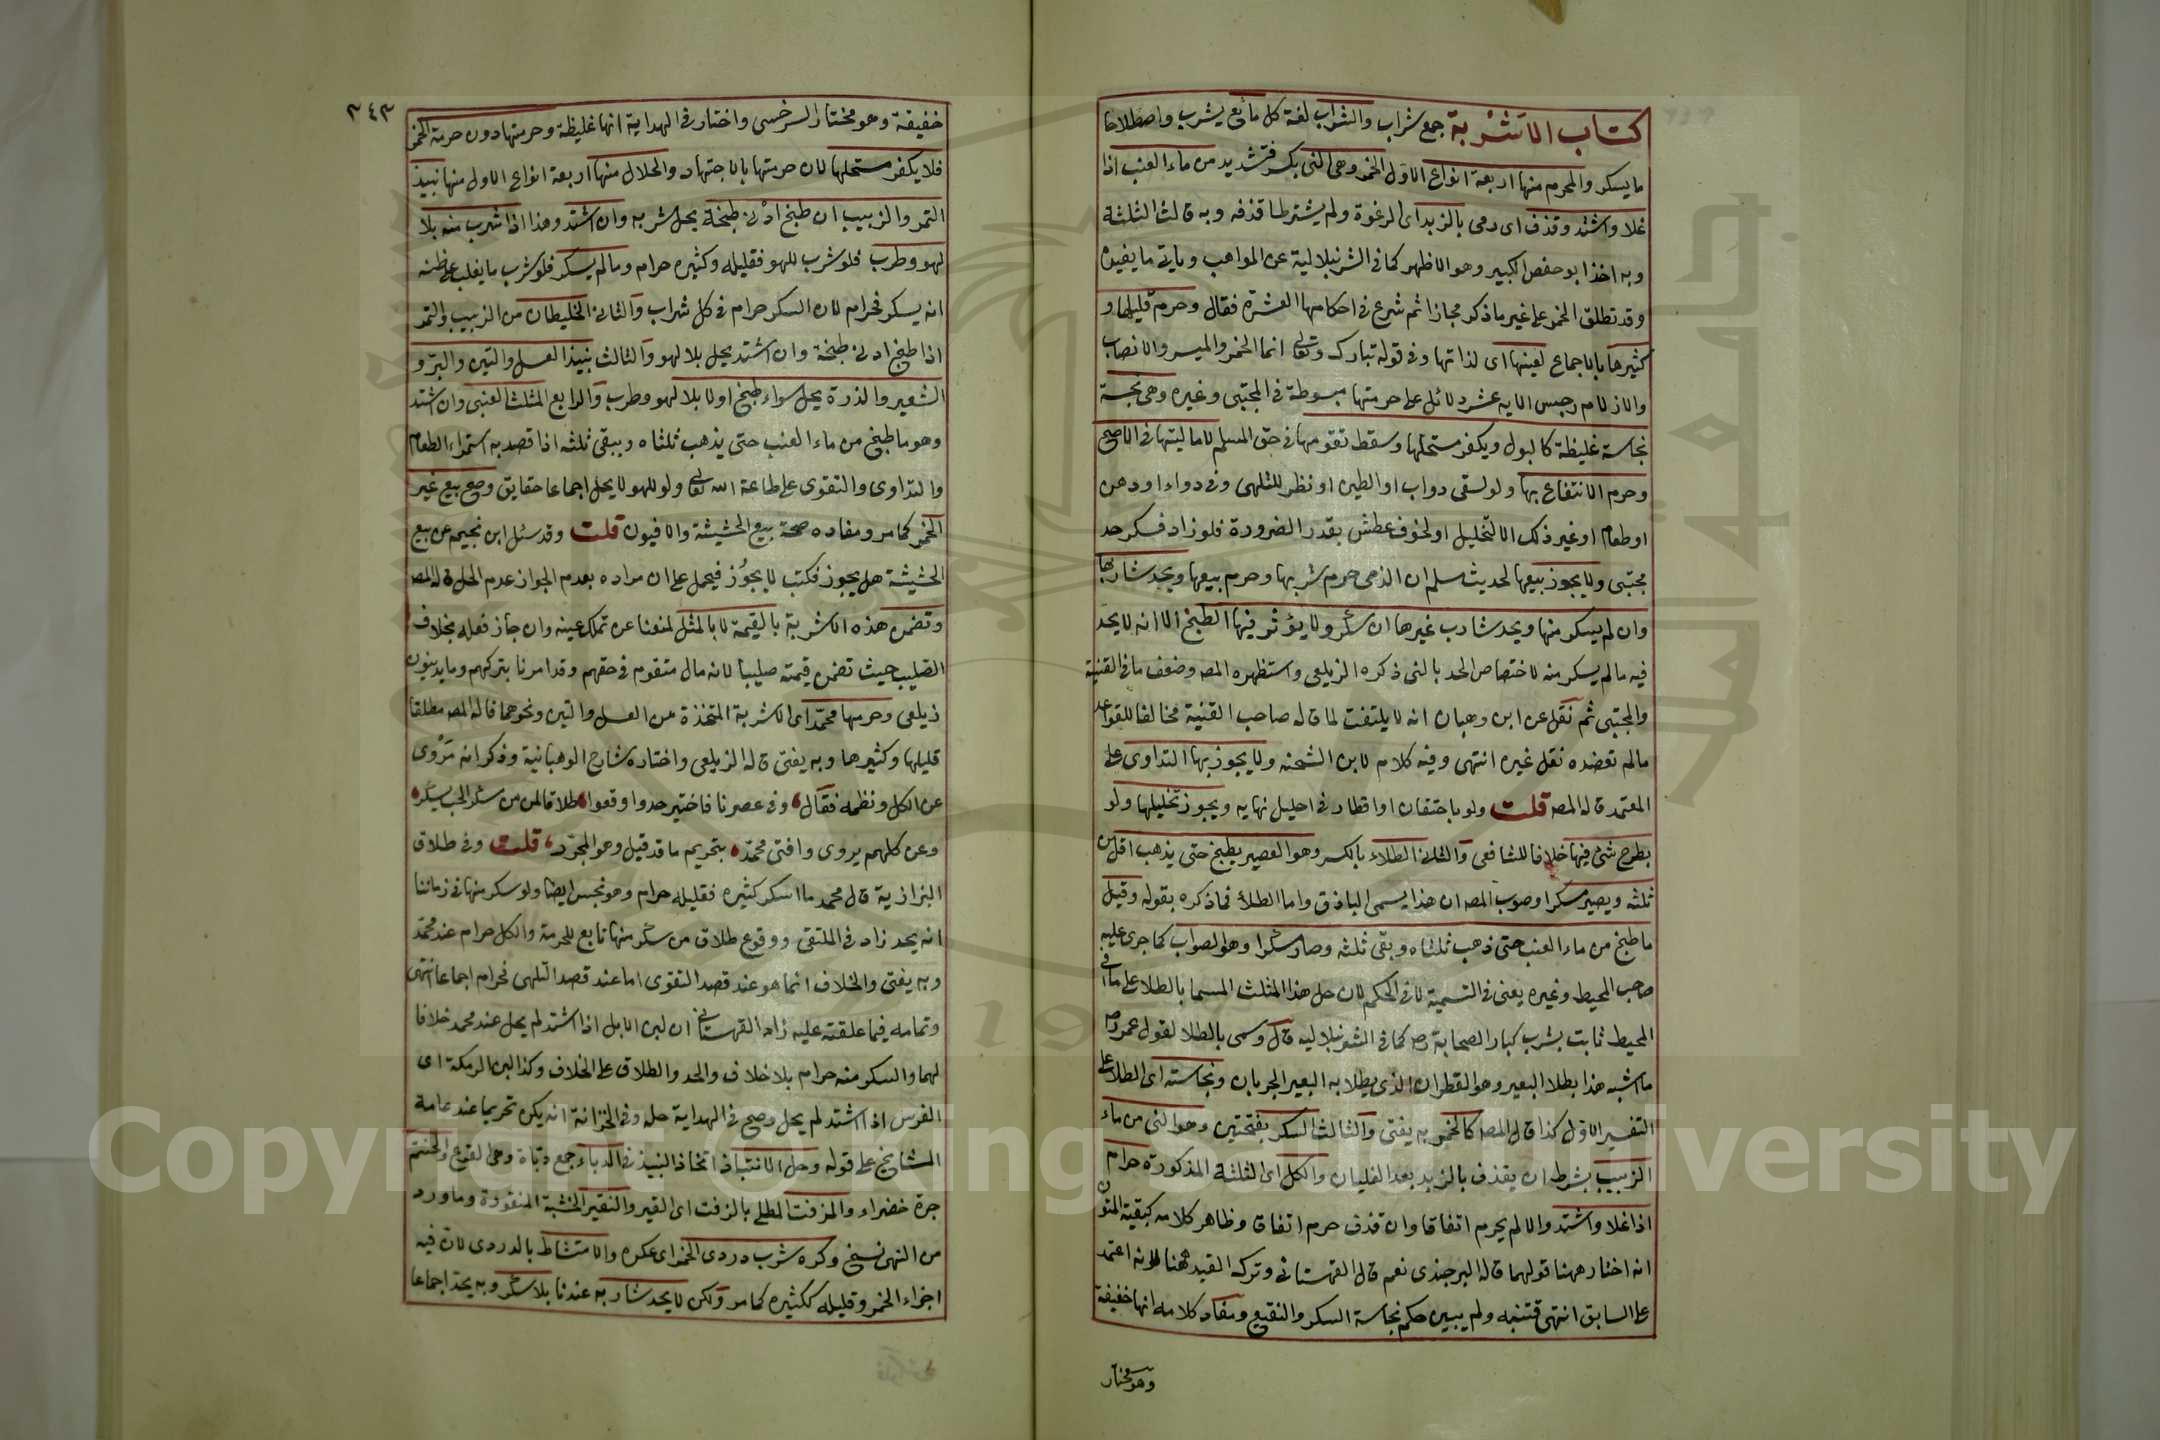 كتاب الاشربة جمع شراب والشراب لغة كل مائع يشرب واصطلاحا
ما يسكر والمحرم منها اربعة انواع الاول الخمر وهى النى بكسر فتشديد من ماء العنب اذا
غلا واشتد وقذف اى رمى بالزبد اى الرغوة ولم يشترطا قذفه وبه قالت الثلثة
وبه اخذ ابو حفص الكبير وهو الاظهر كما فى الشرنبلالية عن المواهب وياتى ما يفيده
وقد تطلق الخمر على غير ما ذكر مجازا ثم شرع فى احكامها العشرة فقال وحرم قليلها و
كثيرها بالاجماع لعينها اى لذاتها وفى قوله تبارك وتعالى انما الخمر والميسر والانصاب
والازلام رجس الايه عشر دلائل على حرمتها مبسوطة فى المجتبى وغيره وهى نجسة
نجاسة غليظة كالبول ويكفر مستحلها وسقط تقومها فى حق المسلم لا ماليتها فى الاصح
وحرم الانتفاع بها ولو لسقى دواب او الطين او نظر للتلهى وفى دواء او دهن
او طعام او غير ذلك الا لتخليل او لخوف عطش بقدر الضرورة فلو زاد فسكر حد
مجتبى ولا يجوز بيعها لحديث سلم ان الذى حرم شربها حرم بيعها ويحد شاربها
وان لم يسكر منها ويحد شارب غيرها ان سكر ولا يؤثر فيها الطبخ الا انه لا يحد
فيه ما لم يسكر منه لاختصاص الحد بالنى ذكره الزيلعى واستظهره المص وضعف ما فى القنية
والمجتبى ثم نقل عن ابن وهبان انه لا يلتفت لما قاله صاحب القنية مخالفا للقواعد
مالم تعضده نقل غيره انتهى وفيه كلام لابن الشحنه ولا يجوز بها التداوى على
المعتمد قاله المص قلت ولو باحتقان او اقطار فى احليل نهايه ويجوز تخليلها ولو
بطرح شئ فيها خلافا للشافعى والثانى الطلاء بالكسر وهو العصير يطبخ حتى يذهب اقل من
ثلثه ويصير مسكرا وصوب المص ان هذا يسمى الباذق واما الطلأ فما ذكره بقوله وقيل
ما طبخ من ماء العنب حتى ذهب ثلثاه وبقى ثلثه وصار مسكرا وهو الصواب كما جرى عليه
صاحب المحيط وغيره يعنى فى التسمية لا فى الحكم لان حل هذا المثلث المسما بالطلا على ما فى
المحيط ثابت بشرب كبار الصحابة رضه كما فى الشرنبلاليه قال وسمى بالطلا لقول عمر رضه
ما اشبه هذا بطلا البعير وهو القطران الذى يطلا به البعير الجربان ونجاسته اى الطلا على
التفسير الاول كذا قاله المص كالخمر به يفتى والثالث السكر بفتحتين وهو النى من ماء
الزبيب بشرط ان يقذف بالزبد بعد الغليان والكل اى الثلثة المذكورة حرام
اذا غلا واشتد والا لم يحرم اتفاقا وان قذف حرم اتفاق وظاهر كلامه كبقية المتون
انه اختار ههنا قولهما قاله البرجندى نعم قال القهستانى وترك القيد هنا لانه اعتمد
على السابق انتهى فتنبه ولم يبين حكم نجاسة السكر والنقيع ومفاد كلامه انها خفيفة
وهو مختار
٣٤٣
خفيفة وهو مختار السرخسى واختار فى الهداية انها غليظة وحرمتها دون حرمة الخمر
فلا يكفر مستحلها لان حرمتها بالاجتهاد والحلال منها اربعة انواع الاول منها نبيذ
التمر والزبيب ان طبخ ادنى طبخة يحل شربه وان اشتد وهذا اذا شرب منه بلا
لهو وطرب فلو شرب للهو فقليله وكثيره حرام وما لم يسكر فلو شرب ما يغلب على ظنه
انه يسكر فحرام لان السكر حرام فى كل شراب والثانى الخليطان من الزبيب والتمر
اذا طبخ ادنى طبخة وان اشتد يحل بلا لهو والثالث نبيذ العسل والتين والبر و
الشعير والذرة يحل سواء طبخ اولا بلا لهو وطرب والرابع المثلث العنبى وان اشتد
وهو ما طبخ من ماء العنب حتى يذهب ثلثاه ويبقى ثلثه اذا قصد به استمراء الطعام
والتداوى والتقوى على طاعة الله تعالى ولو للهو لا يحل اجماعا حقايق وصح بيع غير
الخمر كما مر ومفاده صحة بيع الحشيشة والافيون قلت وقد سئل ابن نجيم عن بيع
الحشيشة هل يجوز فكتب لا يجوز فيحمل على ان مراده بعدم الجواز عدم الحل قاله المص
وتضمن هذه الاشربة بالقيمة لا بالمثل لمنعنا عن تملك عينه وان جاز فعله بخلاف
الصليب حيث تضمن قيمته صليبا لانه مال متقوم فى حقهم وقد امرنا بتركهم وما يدينون
زيلعى وحرمها محمد اى الاشربة المتخذة من العسل والتين ونحوهما قاله المص مطلقا
قليلها وكثيرها وبه يفتى قاله الزيلعى واختاره شارح الوهبانية وذكر انه مروى
عن الكل ونظمه فقال وفى عصرنا فاختير حد واوقعوا طلاقا لمن من مسكر الحب يسكر
وعن كلهم يروى وافتى محمد بتحريم ما قد قيل وهو المجرد قلت وفى طلاق
البزازية قال محمد ما اسكر كثيره فقليله حرام وهو نجس ايضا ولو سكر منها فى زماننا
انه يحد زاد فى الملتقى ووقوع طلاق من سكر منها تابع للحرمة والكل حرام عند محمد
وبه يفتى والخلاف انما هو عند قصد التقوى اما عند قصد التلهى فحرام اجماعا انتهى
وتمامه فيما علقته عليه زاد القهستانى ان لبن الابل اذا اشتد لم يحل عند محمد خلافا
لهما والسكر منه حرام بلا خلاف والحد والطلاق على الخلاف وكذا لبن الرمكة اى
الفرس اذا اشتد لم يحل وصح فى الهداية حله وفى الخزانة انه يكره تحريما عند عامة
المشايخ على قوله وحل الانتباذ اتخاذ النبيذ فى الدباء جمع دباة وهى القرع والحنتم
جرة خضراء والمزفت المطلى بالزفت اى القير والنقير الخشبة المنقورة وما ورد
من النهى نسخ وكره شرب دردى الخمر اى عكره والامتشاط بالدردى لان فيه
اجزاء الخمر وقليله ككثيره كما مر ولكن لا يحد شاربه عندنا بلا سكر وبه يحد اجماعا
Copyright © King Saud University